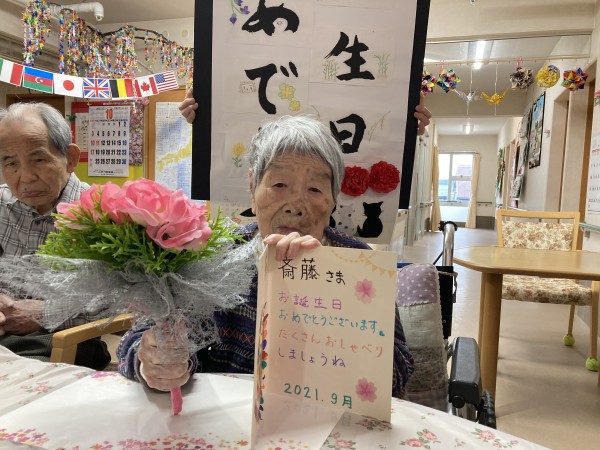 お誕生日
おめで
10
斎藤 さま
お誕生日
おめでとうございます。
たくさんおしゃべり
しましょうね
2021.9月